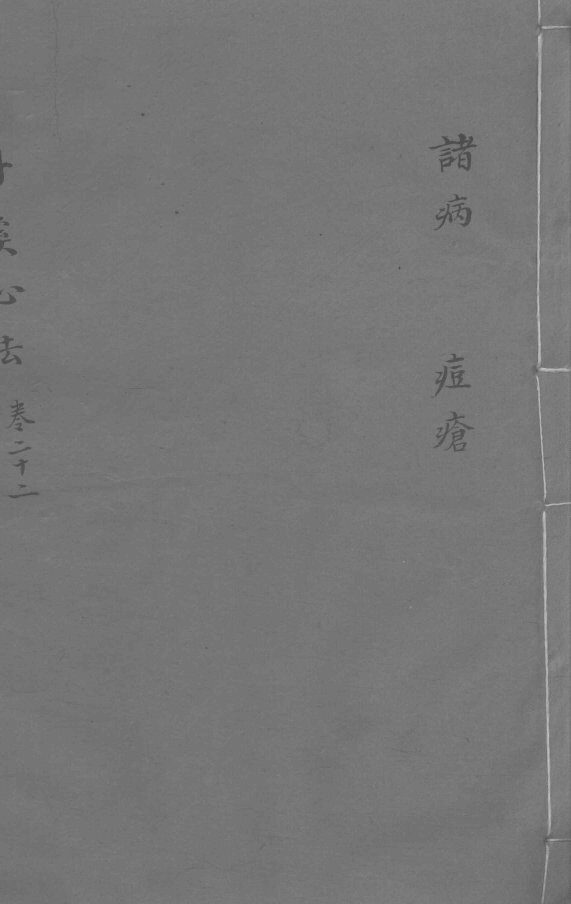 諸病　痘瘡
心法　卷二十二